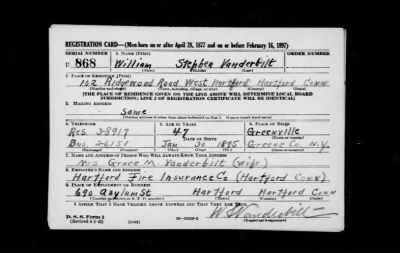 REGISTRATION CARD—(Men born on or after April 28, 1877 and on or before February 16, 1897)
SERIAL NUMBER 1. NAME (Print) ORDER NUMBER
U 868 William Stephen Vanderbilt
(First) (Middle) (Last)
2. PLACE OF RESIDENCE (Print)
102 Ridgewood Road West Hartford Hartford Conn
(Number and street) (Town, township, village, or city) (County) (State)
[THE PLACE OF RESIDENCE GIVEN ON THE LINE ABOVE WILL DETERMINE LOCAL BOARD
JURISDICTION; LINE 2 OF REGISTRATION CERTIFICATE WILL BE IDENTICAL]
3. MAILING ADDRESS
Same
(Mailing address if other than place indicated on line 2. If same insert word same)
4. TELEPHONE 5. AGE IN YEARS 6. PLACE OF BIRTH
Res. 3-8917 47 Greenville
DATE OF BIRTH (Town or county)
Bus. 2-6151 Jan. 30 1895 Greene Co. N.Y.
(Exchange) (Number) (Mo.) (Day) (Yr.) (State or country)
7. NAME AND ADDRESS OF PERSON WHO WILL ALWAYS KNOW YOUR ADDRESS
Mrs Grace M. Vanderbilt (wife)
8. EMPLOYER'S NAME AND ADDRESS
Hartford Fire Insurance Co (Hartford Conn)
9. PLACE OF EMPLOYMENT OR BUSINESS
690 Asylum St Hartford Hartford Conn
(Number and street or R. F. D. number) (Town) (County) (State)
I AFFIRM THAT I HAVE VERIFIED ABOVE ANSWERS AND THAT THEY ARE TRUE.
D. S. S. Form 1
(Revised 4-1-42) W S Vanderbilt
(Registrant's signature)